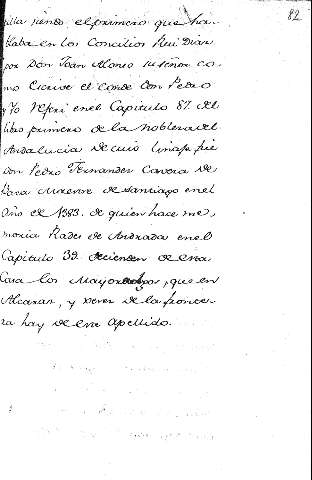 82
villa siendo el primero que ha
blaba en los Concilios Rui Dias
por Don Juan Alonso su señor co
mo escrive el Conde Don Pedro
y Yo referi en el Capitulo 87. del
libro primero de la nobleza del
Andalucia de cuio linage fue
Don Pedro Fernandez Caveza de
Vaca Maestre de Santiago en el
año de 1383. de quien hace me
moria Rades de Andrada en el
Capitulo 39. decienden de esta
Casa los Mayorazgos, que en
Alcaraz, y Xerez de la fronte
ra hay de este Apellido.